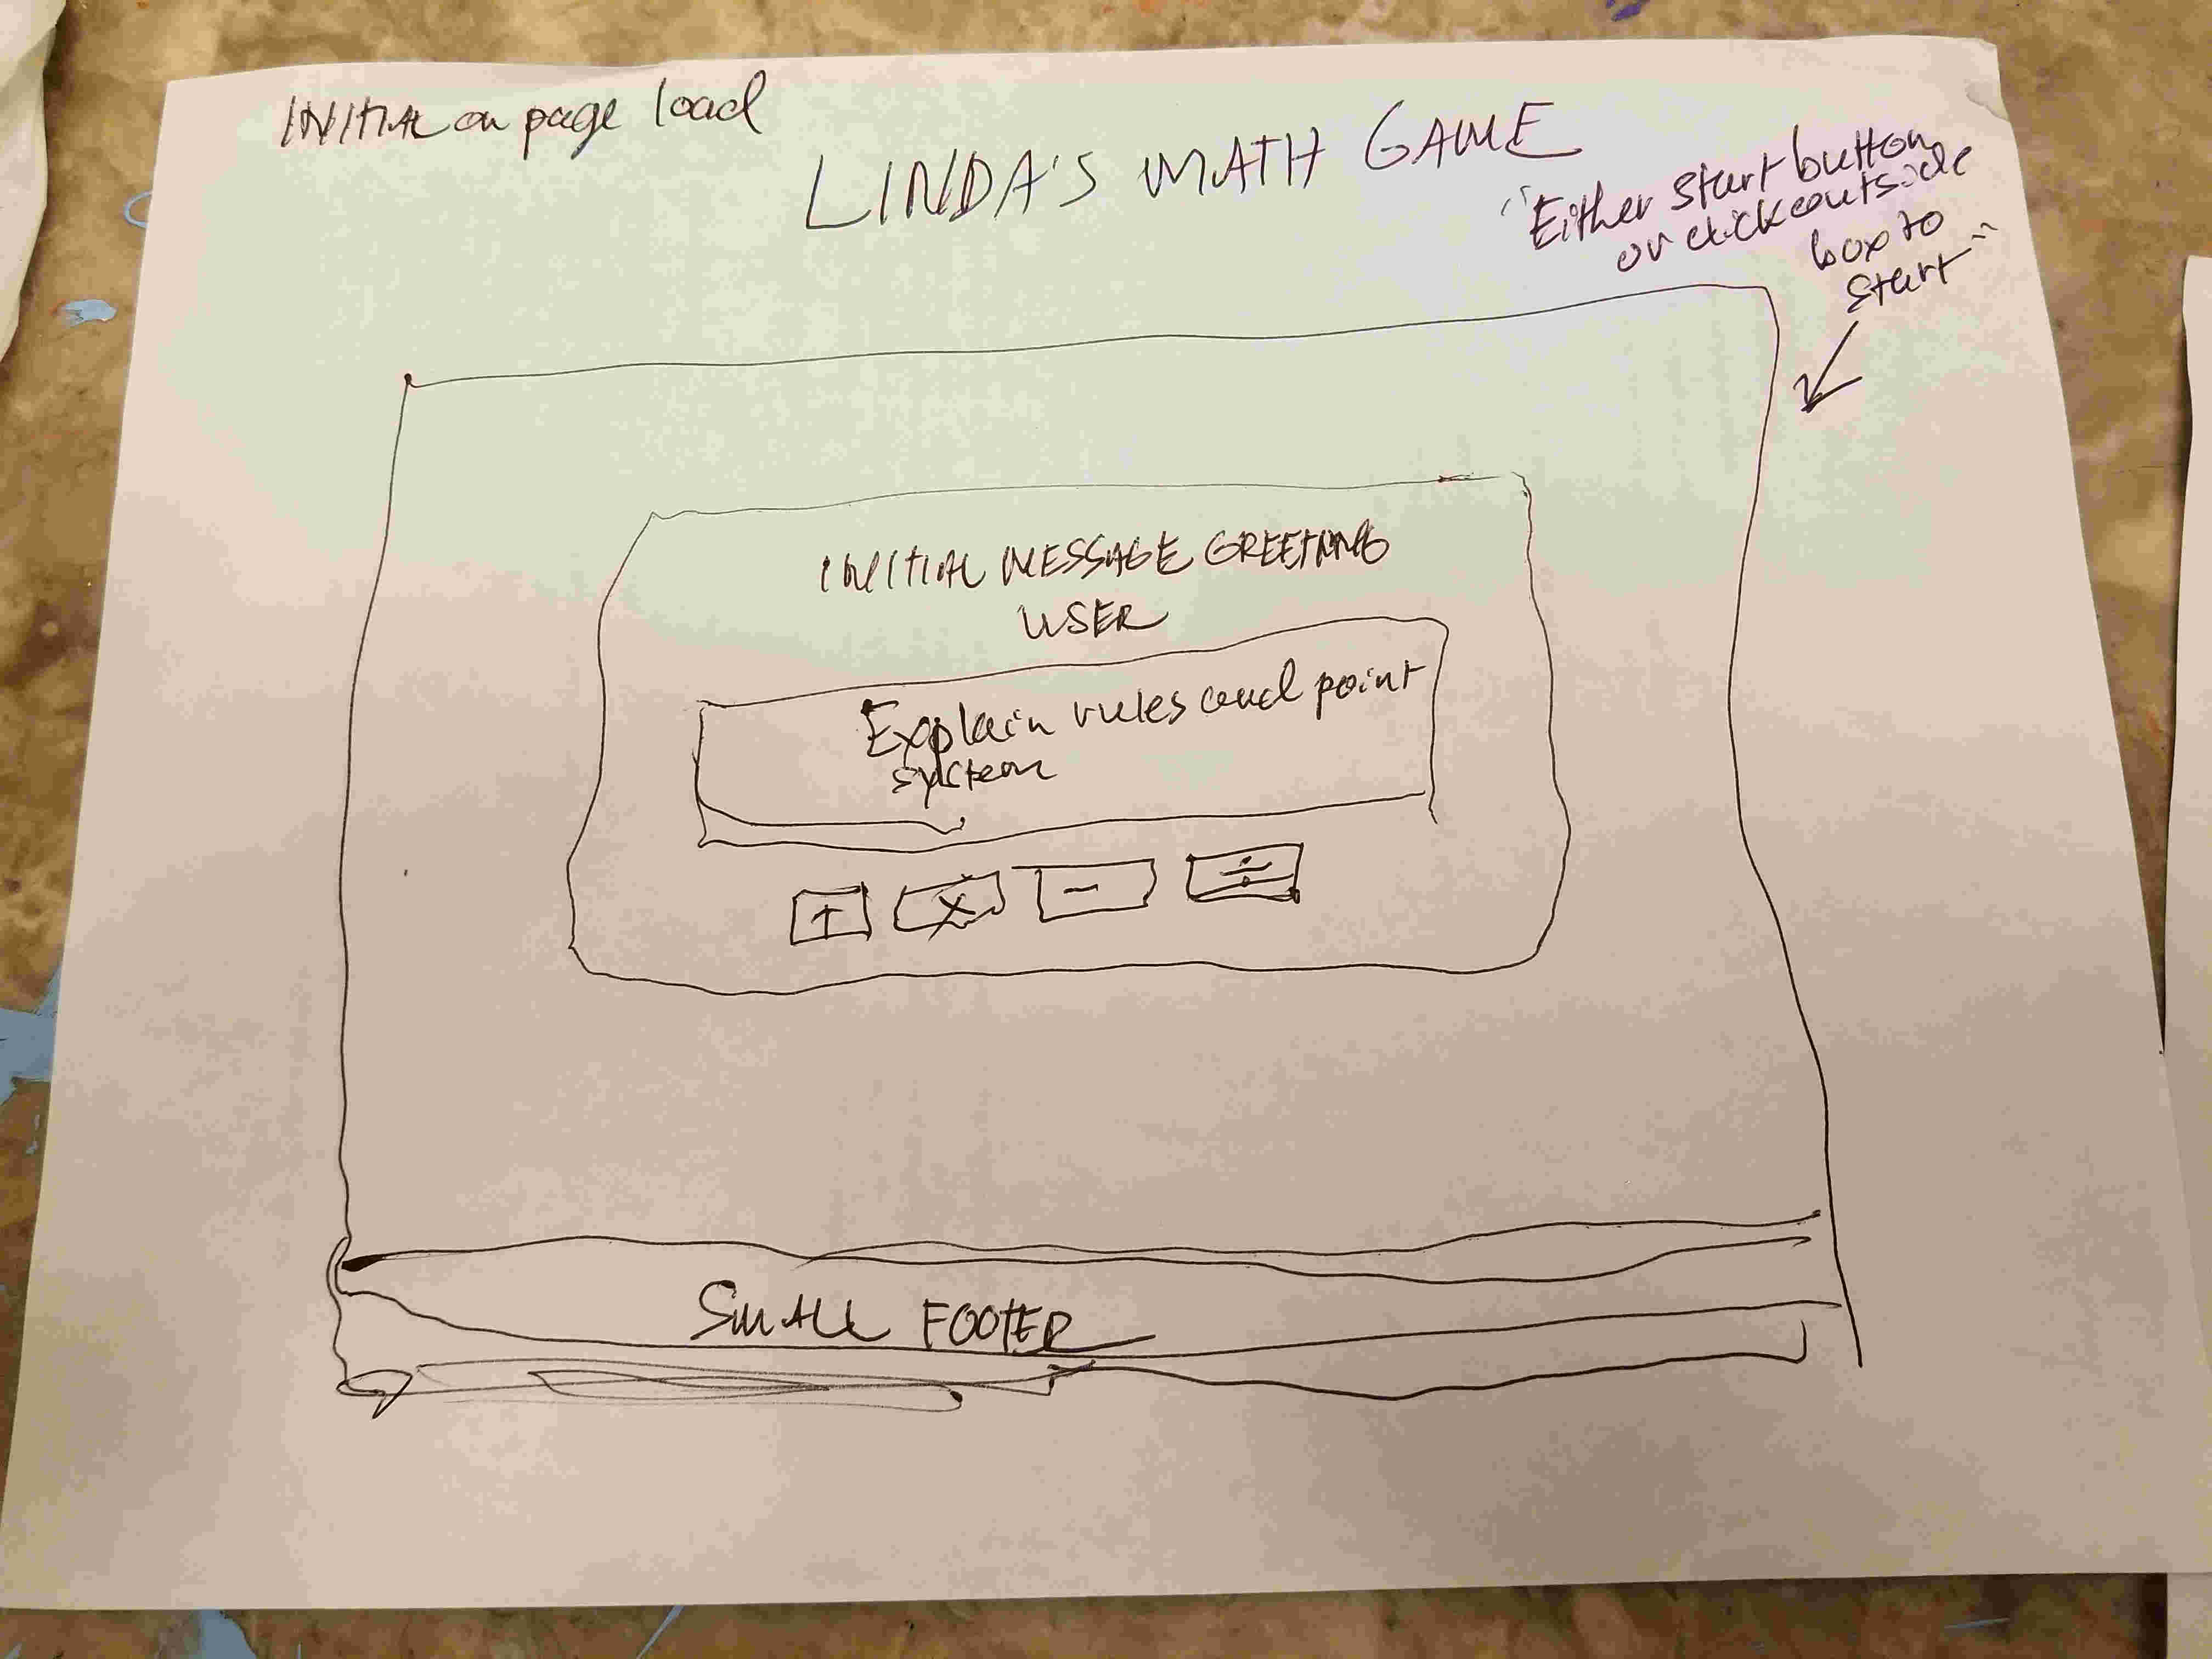 INITIAL on page load
LINDA'S MATH GAME
"Either start button
or click outside
box to
start"
INITIAL MESSAGE GREETING
USER
Explain rules and point
system
+ x - ÷
SMALL FOOTER